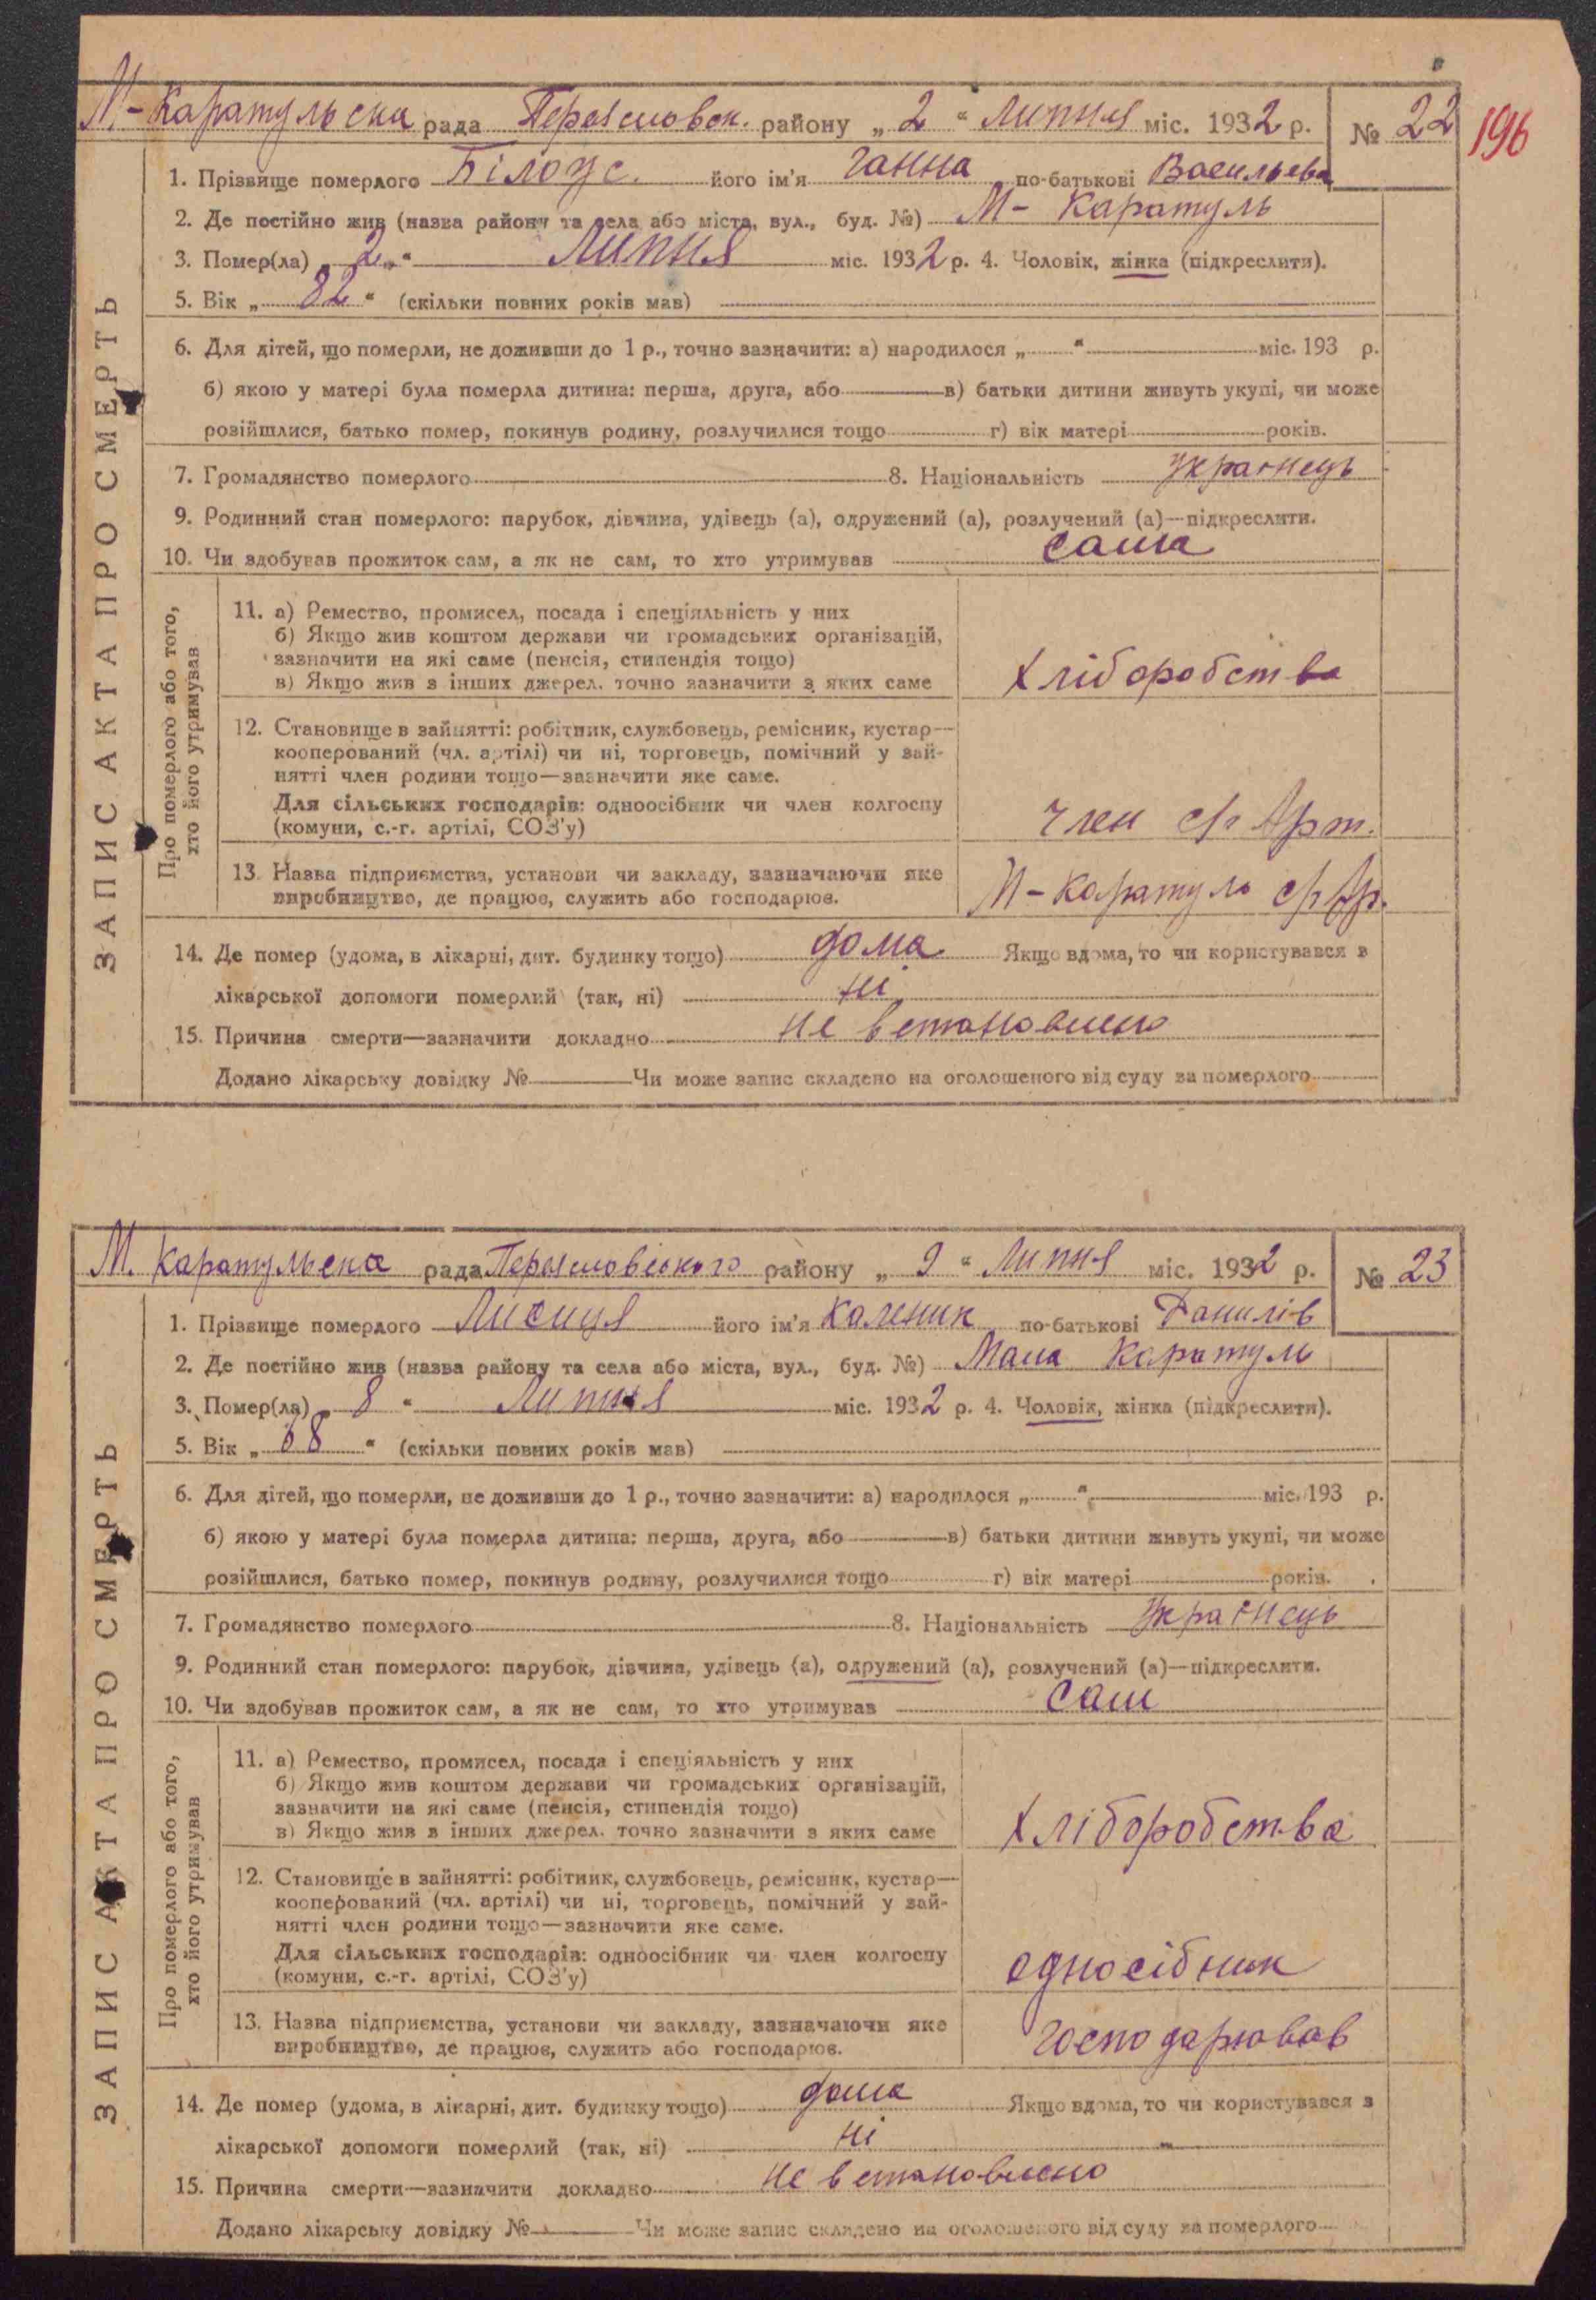 М-Каратульська рада Переяславськ. району „2“ Липня міс. 1932 р. № 22
196
ЗАПИС АКТА ПРО СМЕРТЬ
1. Прізвище померлого Білоус. його ім'я Ганна по-батькові Васильева
2. Де постійно жив (назва району та села або міста, вул., буд. №) М- Каратуль
3. Помер(ла) „2„“ Липня міс. 1932 р. 4. Чоловік, жінка (підкреслити).
5. Вік „82“ (скільки повних років мав)
6. Для дітей, що померли, не доживши до 1 р., точно зазначити: а) народилося „ “ міс. 193 р.
б) якою у матері була померла дитина: перша, друга, або в) батьки дитини живуть укупі, чи може
розійшлися, батько помер, покинув родину, розлучилися тощо г) вік матері років.
7. Громадянство померлого 8. Національність Українець
9. Родинний стан померлого: парубок, дівчина, удівець (а), одружений (а), розлучений (а)—підкреслити.
10. Чи здобував прожиток сам, а як не сам, то хто утримував сама
Про померлого або того,
хто його утримував
11. а) Ремество, промисел, посада і спеціяльність у них
б) Якщо жив коштом держави чи громадських організацій,
зазначити на які саме (пенсія, стипендія тощо)
в) Якщо жив з інших джерел. точно зазначити з яких саме Хліборобства
12. Становище в зайнятті: робітник, службовець, ремісник, кустар—
кооперований (чл. артілі) чи ні, торговець, помічний у зай-
нятті член родини тощо—зазначити яке саме.
Для сільських господарів: одноосібник чи член колгоспу
(комуни, с.-г. артілі, СОЗ'у) член с/г Арт.
13. Назва підприємства, установи чи закладу, зазначаючи яке М-Каратуль с/г Ар.
виробництво, де працює, служить або господарює.
14. Де помер (удома, в лікарні, дит. будинку тощо) дома Якщо вдома, то чи користувався з
лікарської допомоги померлий (так, ні) ні
15. Причина смерти—зазначити докладно не встановлено
Додано лікарську довідку № Чи може запис складено на оголошеного від суду за померлого
М. Каратульска рада Переяславського району „9“ Липня міс. 1932 р. № 23
ЗАПИС АКТА ПРО СМЕРТЬ
1. Прізвище померлого Лисиця його ім'я Каленик по-батькові Данилів
2. Де постійно жив (назва району та села або міста, вул., буд. №) Мала Каратуль
3. Помер(ла) „8“ Липня міс. 1932 р. 4. Чоловік, жінка (підкреслити).
5. Вік „68“ (скільки повних років мав)
6. Для дітей, що померли, не доживши до 1 р., точно зазначити: а) народилося „ “ міс. 193 р.
б) якою у матері була померла дитина: перша, друга, або в) батьки дитини живуть укупі, чи може
розійшлися, батько помер, покинув родину, розлучилися тощо г) вік матері років.
7. Громадянство померлого 8. Національність Українець
9. Родинний стан померлого: парубок, дівчина, удівець (а), одружений (а), розлучений (а)—підкреслити.
10. Чи здобував прожиток сам, а як не сам, то хто утримував сам
Про померлого або того,
хто його утримував
11. а) Ремество, промисел, посада і спеціяльність у них
б) Якщо жив коштом держави чи громадських організацій,
зазначити на які саме (пенсія, стипендія тощо)
в) Якщо жив з інших джерел. точно зазначити з яких саме Хліборобства
12. Становище в зайнятті: робітник, службовець, ремісник, кустар—
кооперований (чл. артілі) чи ні, торговець, помічний у зай-
нятті член родини тощо—зазначити яке саме.
Для сільських господарів: одноосібник чи член колгоспу
(комуни, с.-г. артілі, СОЗ'у) односібник
13. Назва підприємства, установи чи закладу, зазначаючи яке господарював
виробництво, де працює, служить або господарює.
14. Де помер (удома, в лікарні, дит. будинку тощо) дома Якщо вдома, то чи користувався з
лікарської допомоги померлий (так, ні) ні
15. Причина смерти—зазначити докладно не встановлено
Додано лікарську довідку № Чи може запис складено на оголошеного від суду за померлого